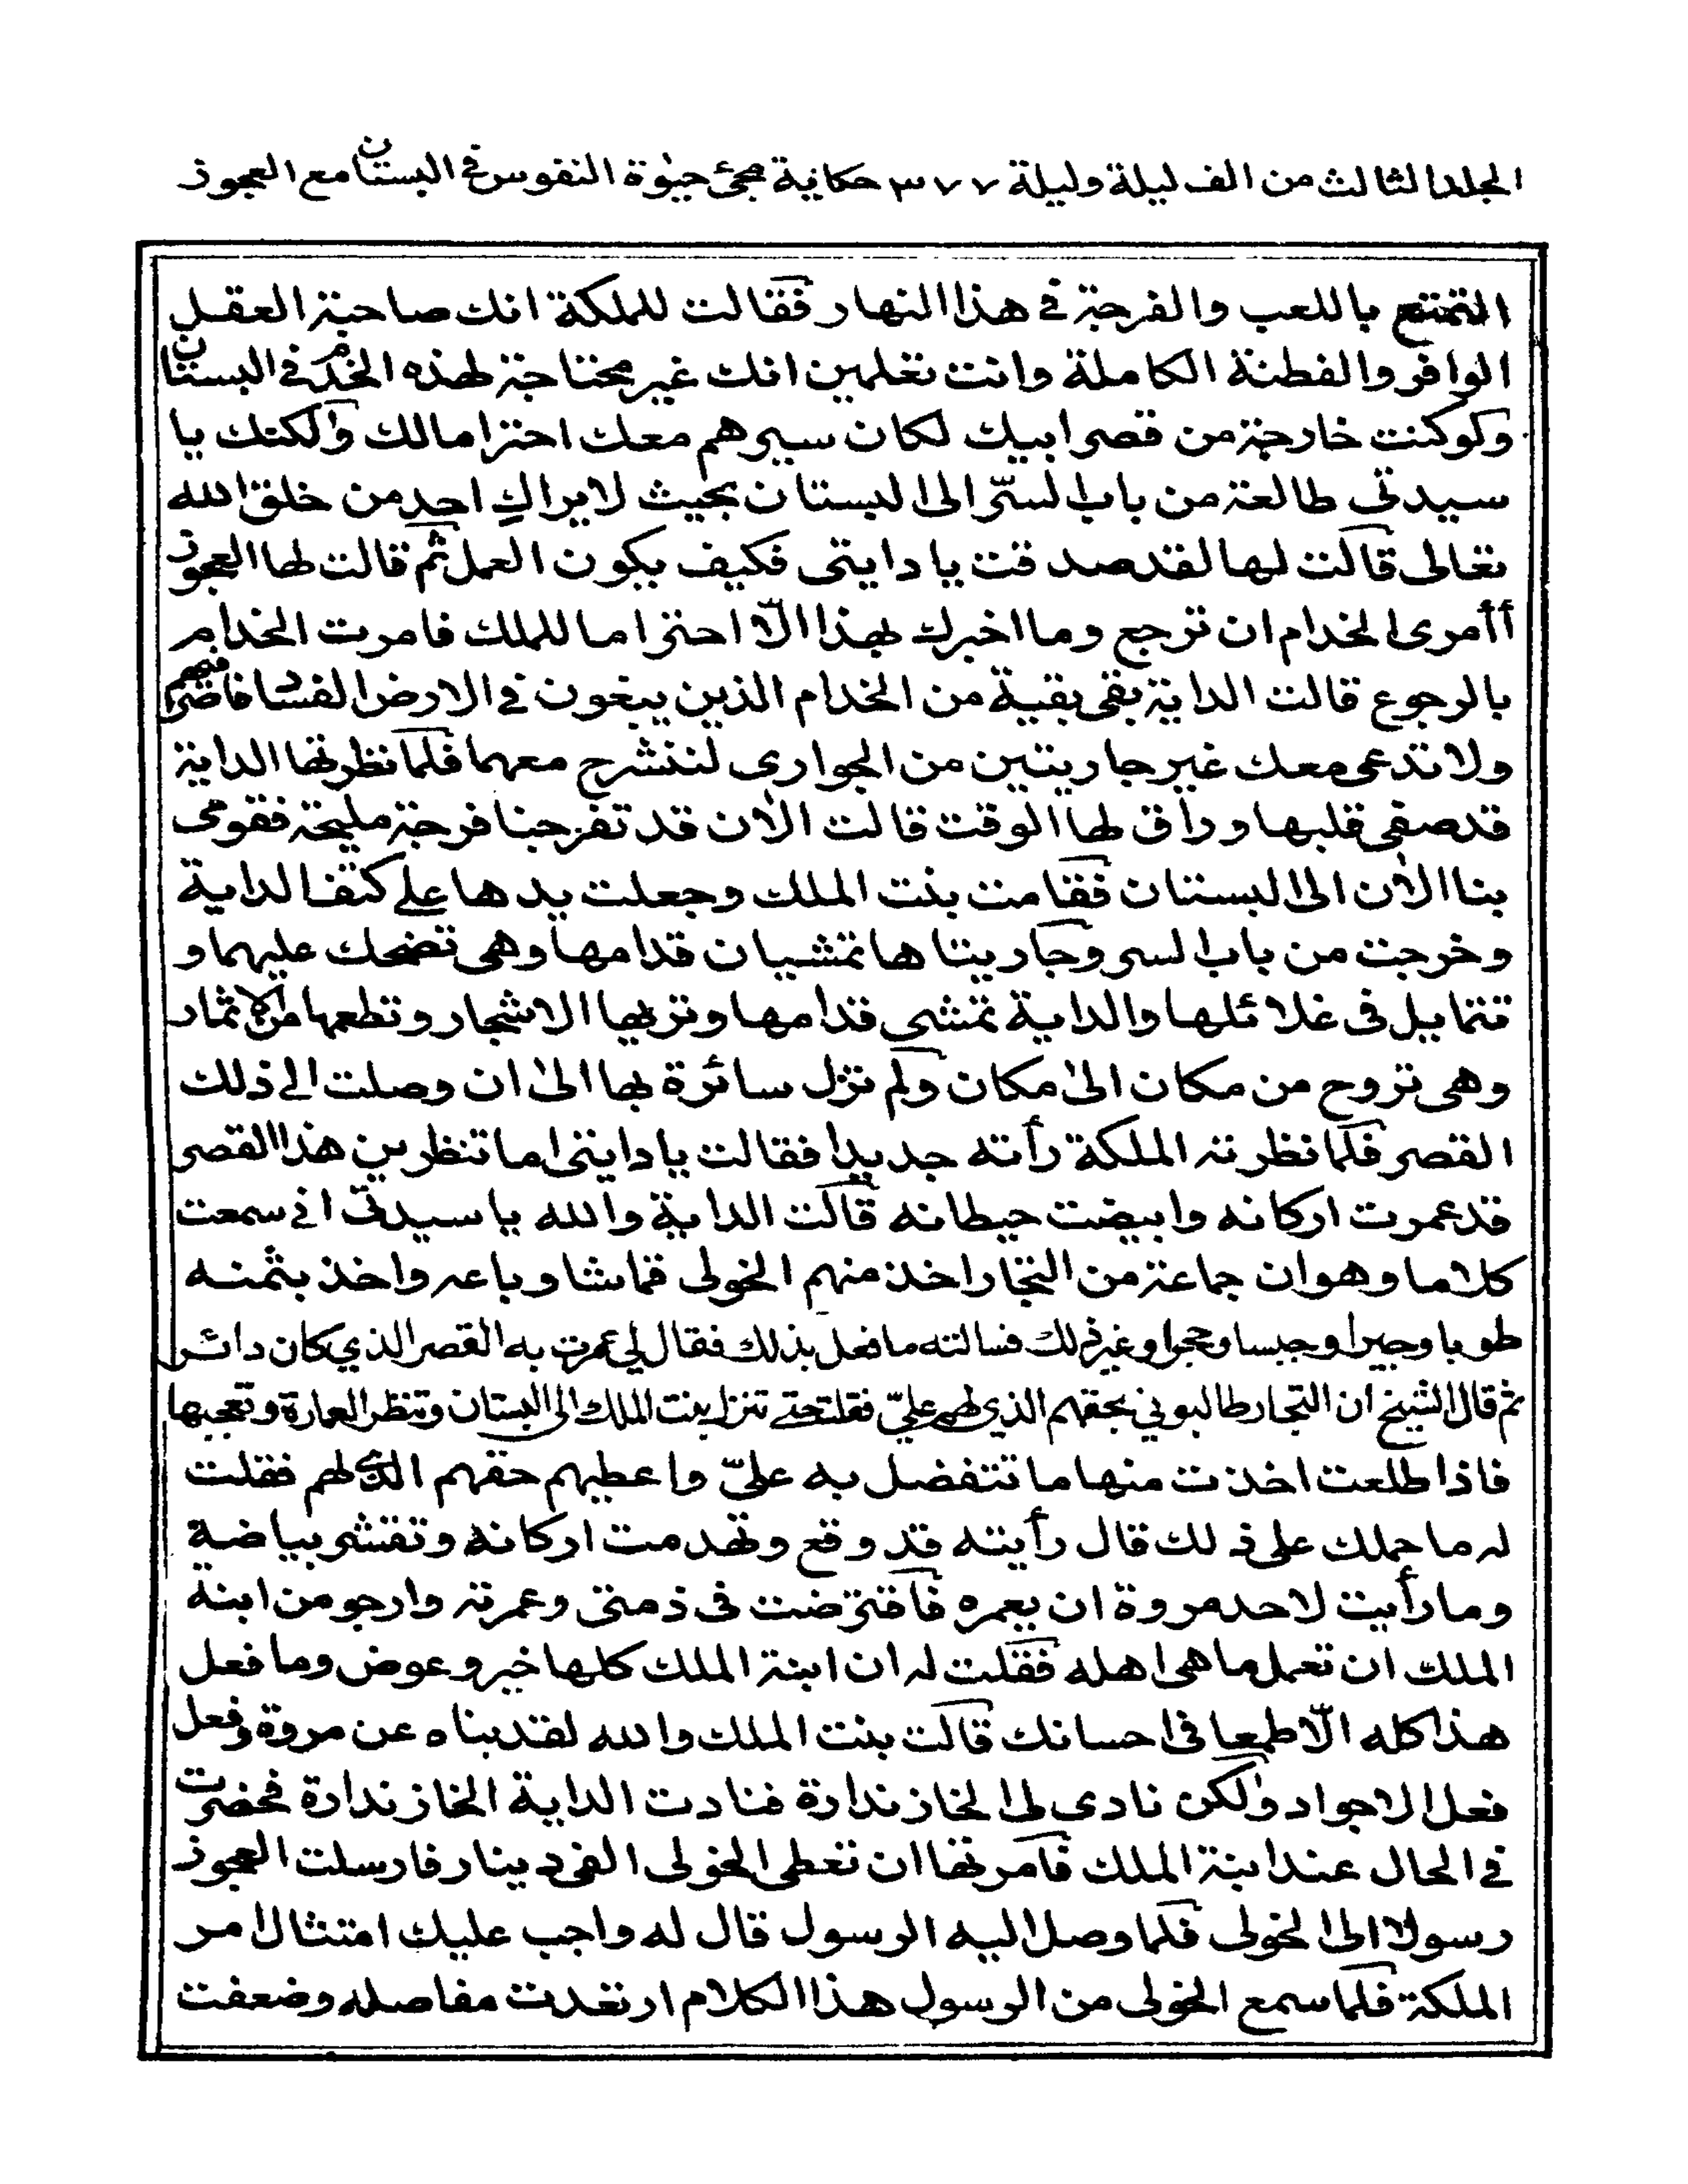 المجلد الثالث من الف ليلة وليلة ٣٧٧ حكاية مجئ حيوة النفوس في البستان مع العجوز
التمتع باللعب والفرجة في هذا النهار فقالت للملكة انك صاحبة العقل
الوافر والفطنة الكاملة وانت تعلمين انك غير محتاجة لهذه الخدم في البستان
ولو كنت خارجة من قصر ابيك لكان سيرهم معك احتراما لك ولكنك يا
سيدتي طالعة من باب السرّ الى البستان بحيث لا يراكِ احد من خلق الله
تعالى قالت لها لقد صدقت يا دايتى فكيف يكون العمل ثم قالت لها العجوز
أأمرى الخدام ان ترجع وما اخبرك بهذا الّا احتراما للملك فامرت الخدام
بالرجوع قالت الداية بقى بقية من الخدام الذين يبغون في الارض الفساد فاصرفيهم
ولا تدعى معك غير جاريتين من الجوارى لننشرح معهما فلما نظرتها الداية
قد صفى قلبها وراق لها الوقت قالت الآن قد تفرجنا فرجة مليحة فقومى
بنا الآن الى البستان فقامت بنت الملك وجعلت يدها على كتف الداية
وخرجت من باب السر وجاريتاها تمشيان قدامها وهى تضحك عليهما و
تتمايل فى غلائلها والداية تمشى قدامها وتريها الاشجار وتطعمها من الاثمار
وهى تروح من مكان الى مكان ولم تزل سائرة بها الى ان وصلت الى ذلك
القصر فلما نظرته الملكة رأته جديدا فقالت يا دايتى اما تنظرين هذا القصر
قد عمرت اركانه وابيضت حيطانه قالت الداية والله يا سيدتى اني سمعت
كلاما وهو ان جماعة من التجار اخذ منهم الخولى قماشا وباعه واخذ بثمنه
طوبا وجيرا وجبسا وحجرا وغير ذلك فسالته ما فعل بذلك فقال لي عمرت به القصر الذي كان دائرا
ثم قال الشيخ ان التجار طالبوني بحقهم الذي لهم عليّ فقلت حتى تنزل بنت الملك الى البستان وتنظر العمارة وتعجبها
فاذا طلعت اخذت منها ما تتفضل به علىّ واعطيهم حقهم الذي لهم فقلت
له ما حملك على ذلك قال رأيته قد وقع وتهدمت اركانه وتقشر بياضه
وما رأيت لاحد مروة ان يعمره فاقترضت فى ذمتى وعمرته وارجو من ابنة
الملك ان تعمل ما هى اهله فقلت له ان ابنة الملك كلها خير وعوض وما فعل
هذا كله الّا طمعا فى احسانك قالت بنت الملك والله لقد بناه عن مروة وفعل
فعل الاجواد ولكن نادى لى الخازندارة فنادت الداية الخازندارة فحضرت
في الحال عند ابنة الملك فامرتها ان تعطى الخولى الفى دينار فارسلت العجوز
رسولا الى الخولى فلما وصل اليه الرسول قال له واجب عليك امتثال امر
الملكة فلما سمع الخولى من الرسول هذا الكلام ارتعدت مفاصله وضعفت